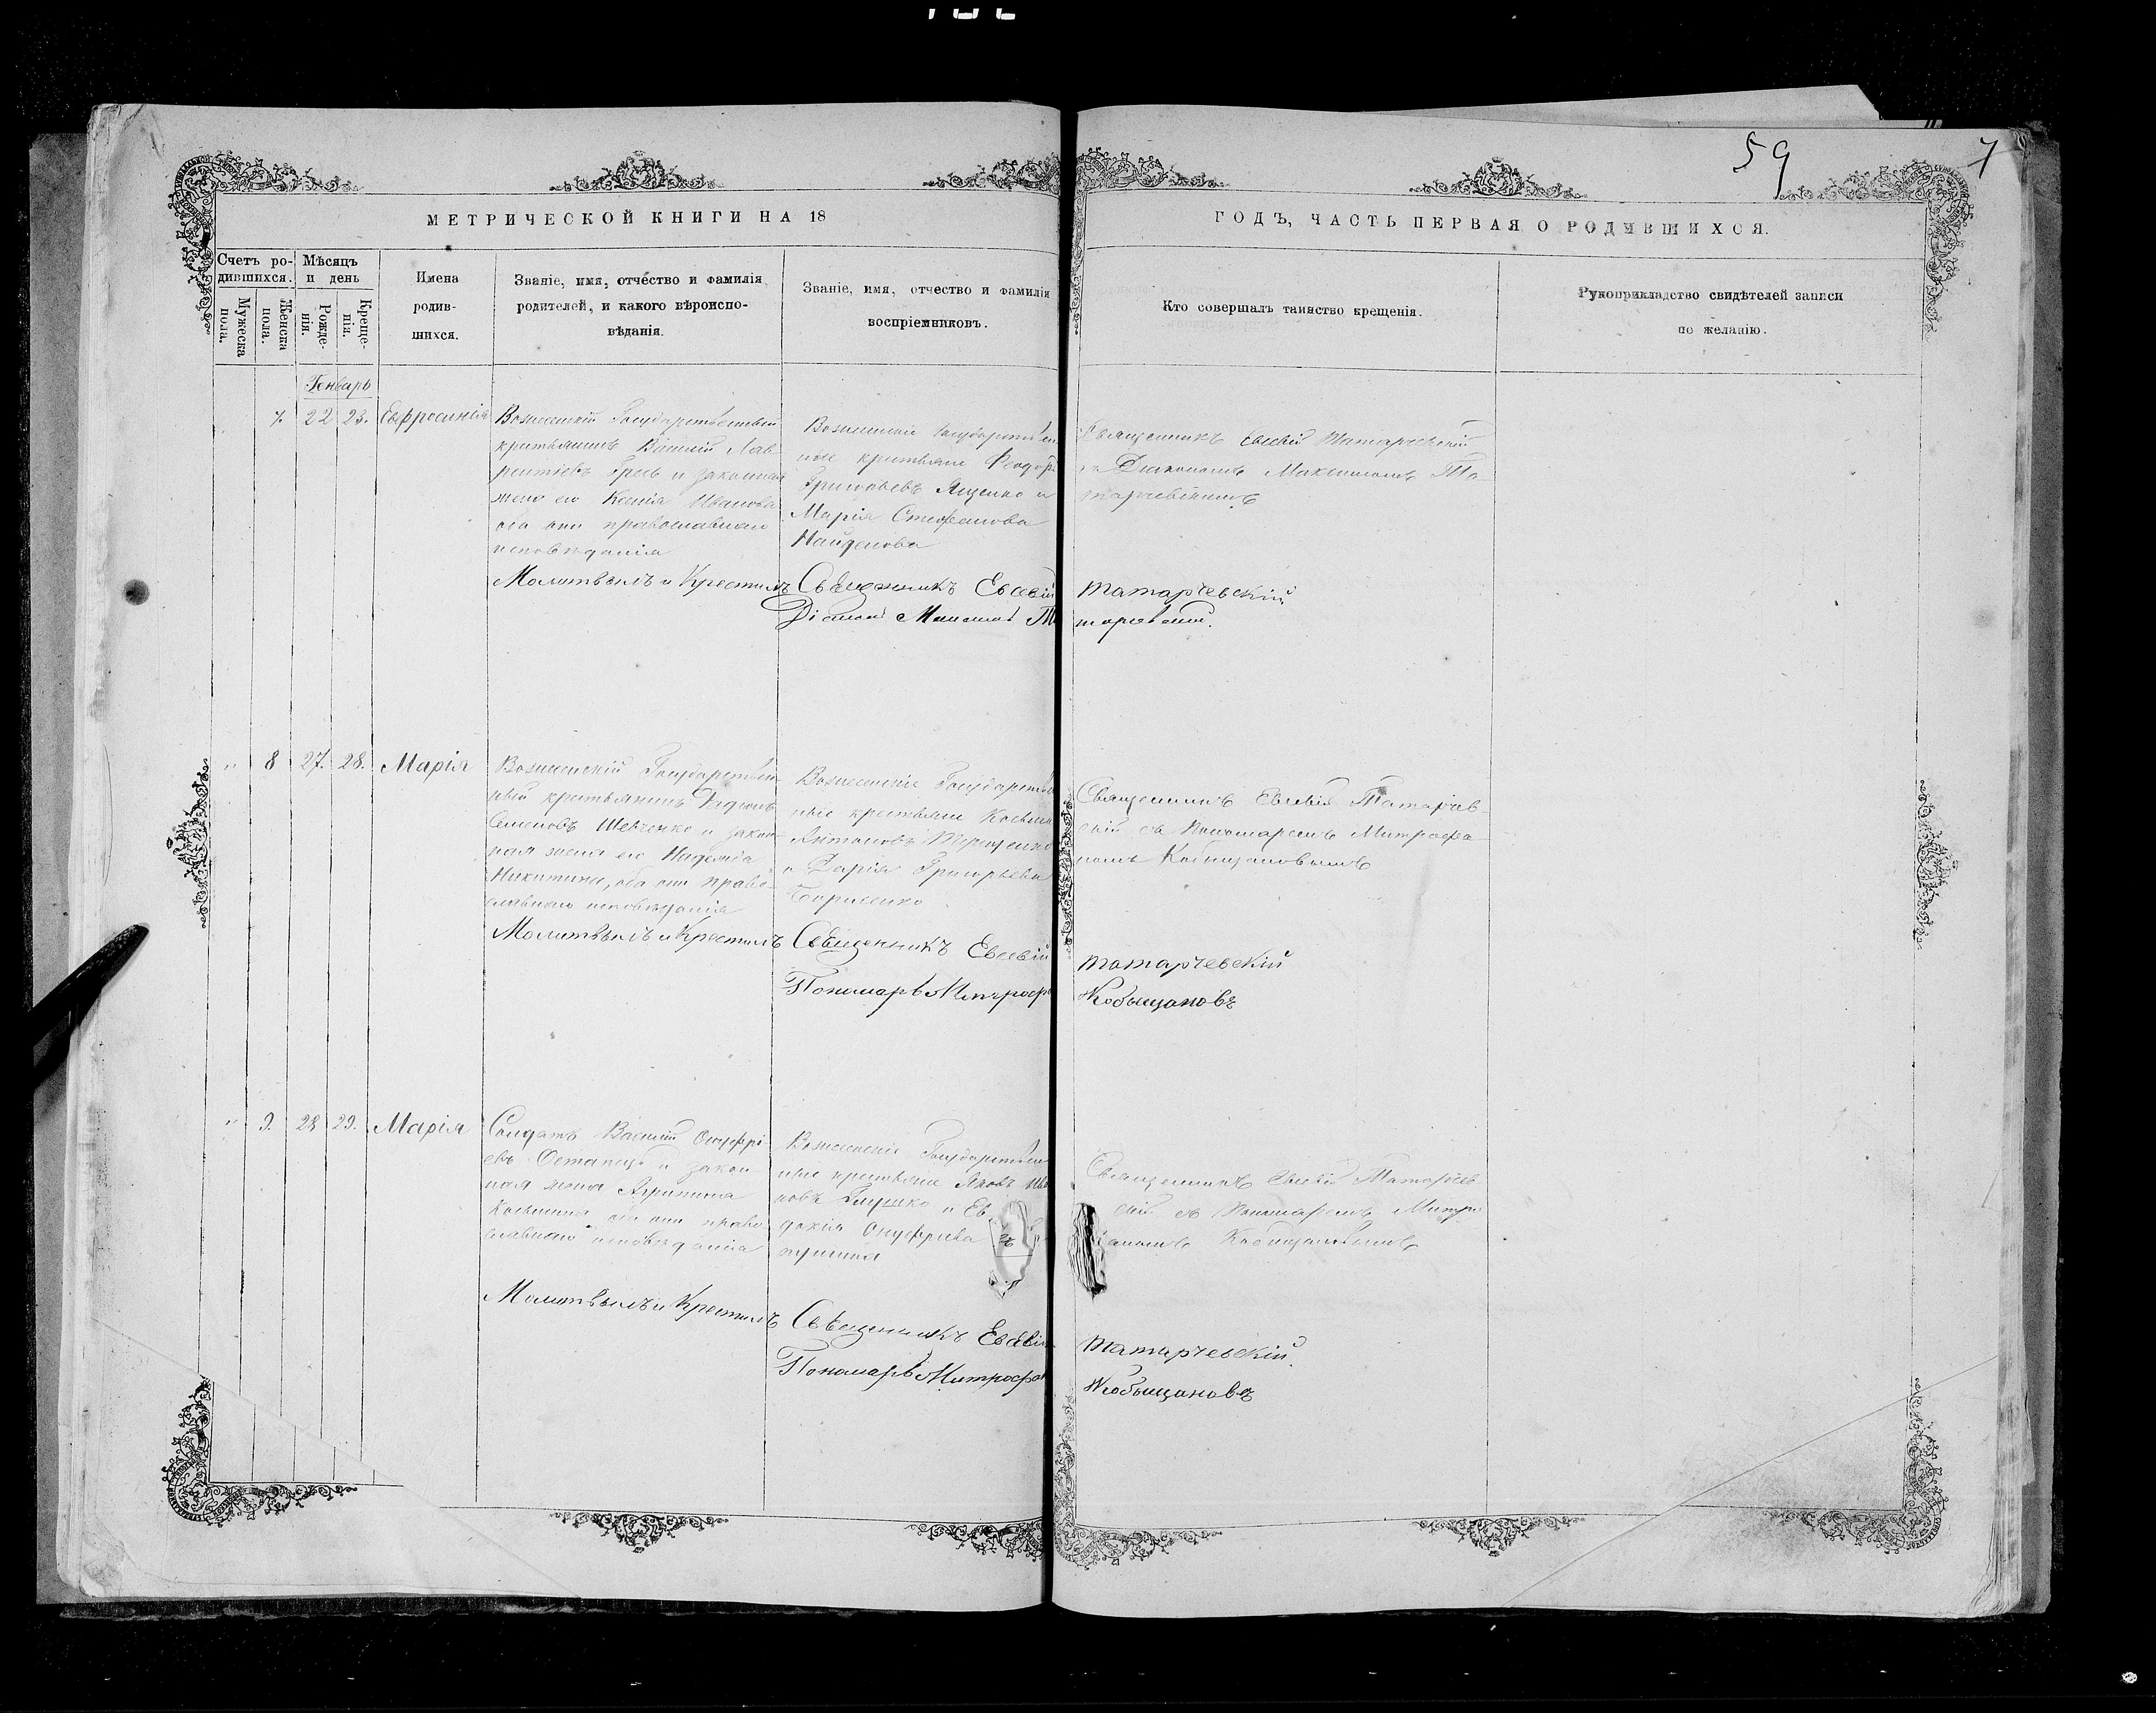 59
7
МЕТРИЧЕСКОЙ КНИГИ НА 18
ГОДЪ, ЧАСТЬ ПЕРВАЯ О РОДИВШИХСЯ.
Счетъ ро-
дившихся.
Мужеска
пола.
Женска
пола.
Мѣсяцъ
и день
Рожде-
нія.
Креще-
нія.
Имена
родив-
шихся.
Званіе, имя, отчество и фамилія
родителей, и какого вѣроиспо-
вѣданія.
Званіе, имя, отчество и фамилія
воспріемниковъ.
Кто совершалъ таинство крещенія.
Рукоприкладство свидѣтелей записи
по желанію.
Генварь
7. 22 23. Евфросинія
Государственный
крестьянинъ Василій Лав-
рентіевъ и законная
жена его Ксенія Иванова
оба они православнаго
исповѣданія
крестьяне Феодоръ
Григорьевъ Яценко и
Марія Стефанова
Найденова
Священникъ Евсевій Татарчевскій
съ Діакономъ Максимомъ Та-
тарчевскимъ
Молитвилъ и Крестилъ Священникъ Евсевій Татарчевскій
Діаконъ Татарчевскій.
" 8 27. 28. Марія
Вознесенскій Государствен-
ный крестьянинъ
Семеновъ Шевченко и закон-
ная жена его Надежда
Никитина, оба они право-
славнаго исповѣданія
Вознесенскіе Государствен
ные крестьяне Косьма
Антоновъ Терещенко
и Дарія Григорьева
Борисенко
Священникъ Евсевій Татарчев-
скій съ Пономаремъ Митрофа-
номъ Кобыщановымъ
Молитвилъ и Крестилъ Священникъ Евсевій Татарчевскій
Пономарь Митроф Кобыщановъ
" 9. 28 29. Марія
Солдатъ Василій Онуфрі-
евъ Остапецъ и закон-
ная жена Агрипина
Косьмина оба они право
славнаго исповѣданія
Вознесенскіе Государствен
ные крестьяне Яковъ Ива
новъ Глушко и Ев
докія Онуфріева
Священникъ Евсевій Татарчев
скій съ Пономаремъ Митро
Кобыщановымъ
Молитвилъ и Крестилъ Священникъ Евсевій Татарчевскій.
Пономарь Митрофан Кобыщановъ